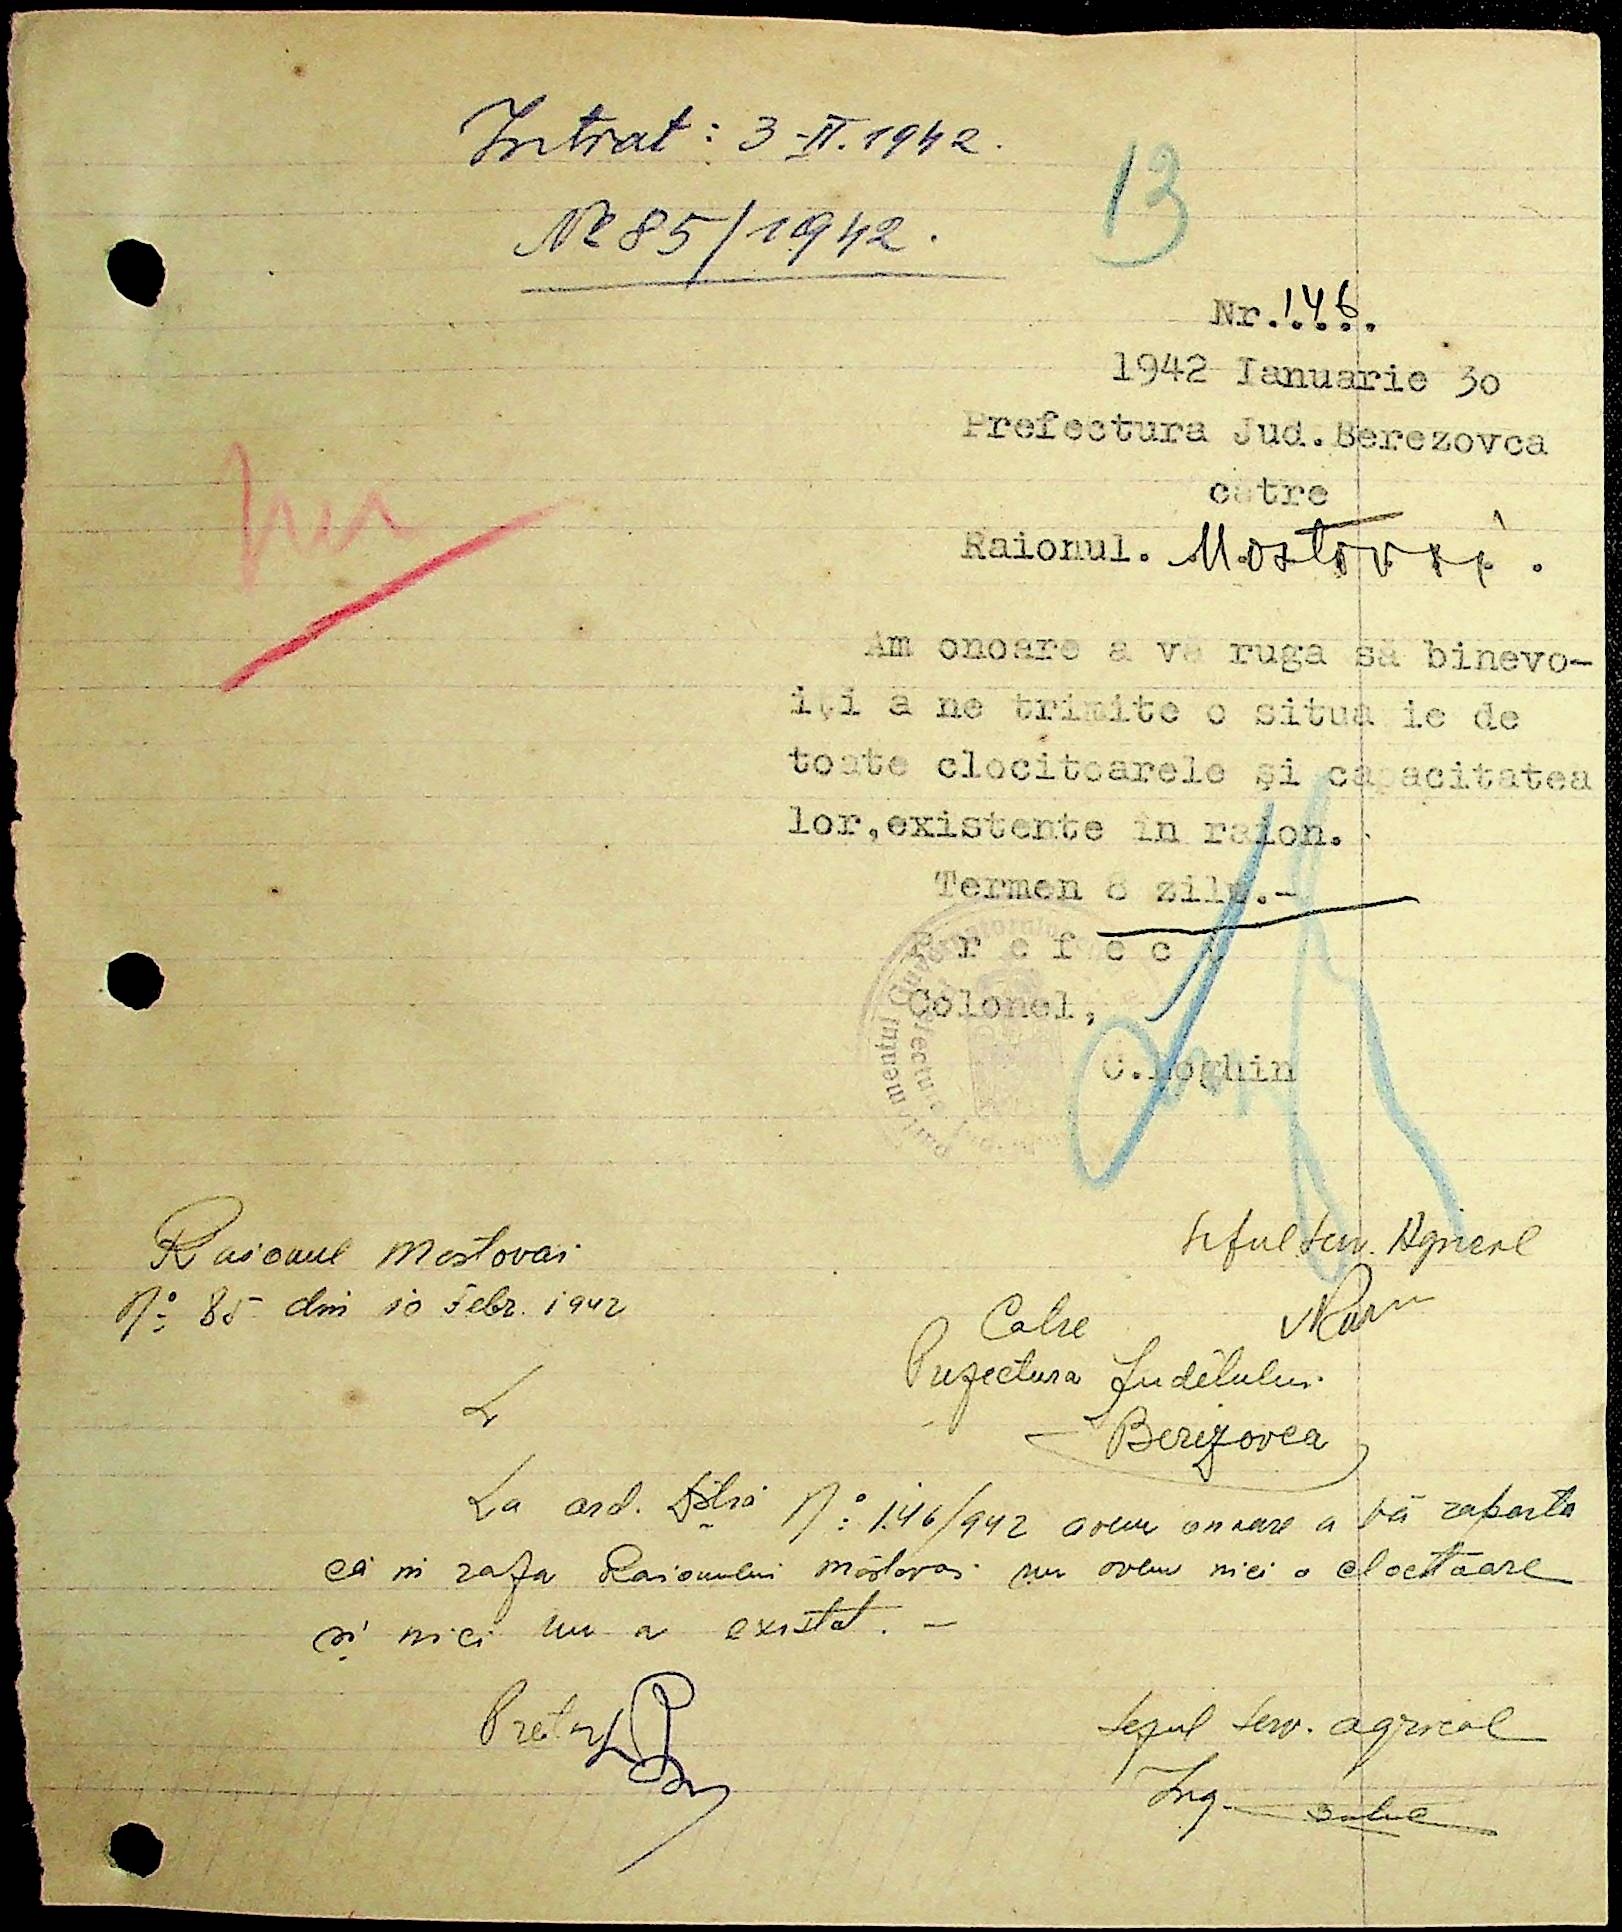 Intrat: 3-II.1942.
№ 85/1942.
13
Nr.146.
1942 Ianuarie 30
Prefectura Jud.Berezovca
catre
Raionul. Mostovoi.
Am onoare a vă ruga să binevo-
iţi a ne trimite o situaţie de
toate clocitoarele şi capacitatea
lor,existente in raion.
Termen 8 zile.-
Prefect
Colonel,
C.Loghin
Seful Serv. Agricol
Raionul Mostovoi
No: 85 din 10 Febr. 1942
Catre
Prefectura Judetului
Berezovca
La ord. No: 146/942 avem onoare a vă raporta
că in raza Raionului Mostovoi nu avem nici o clocitoare
si nici nu a existat. -
Pretor
Seful Serv. agricol
Ing.